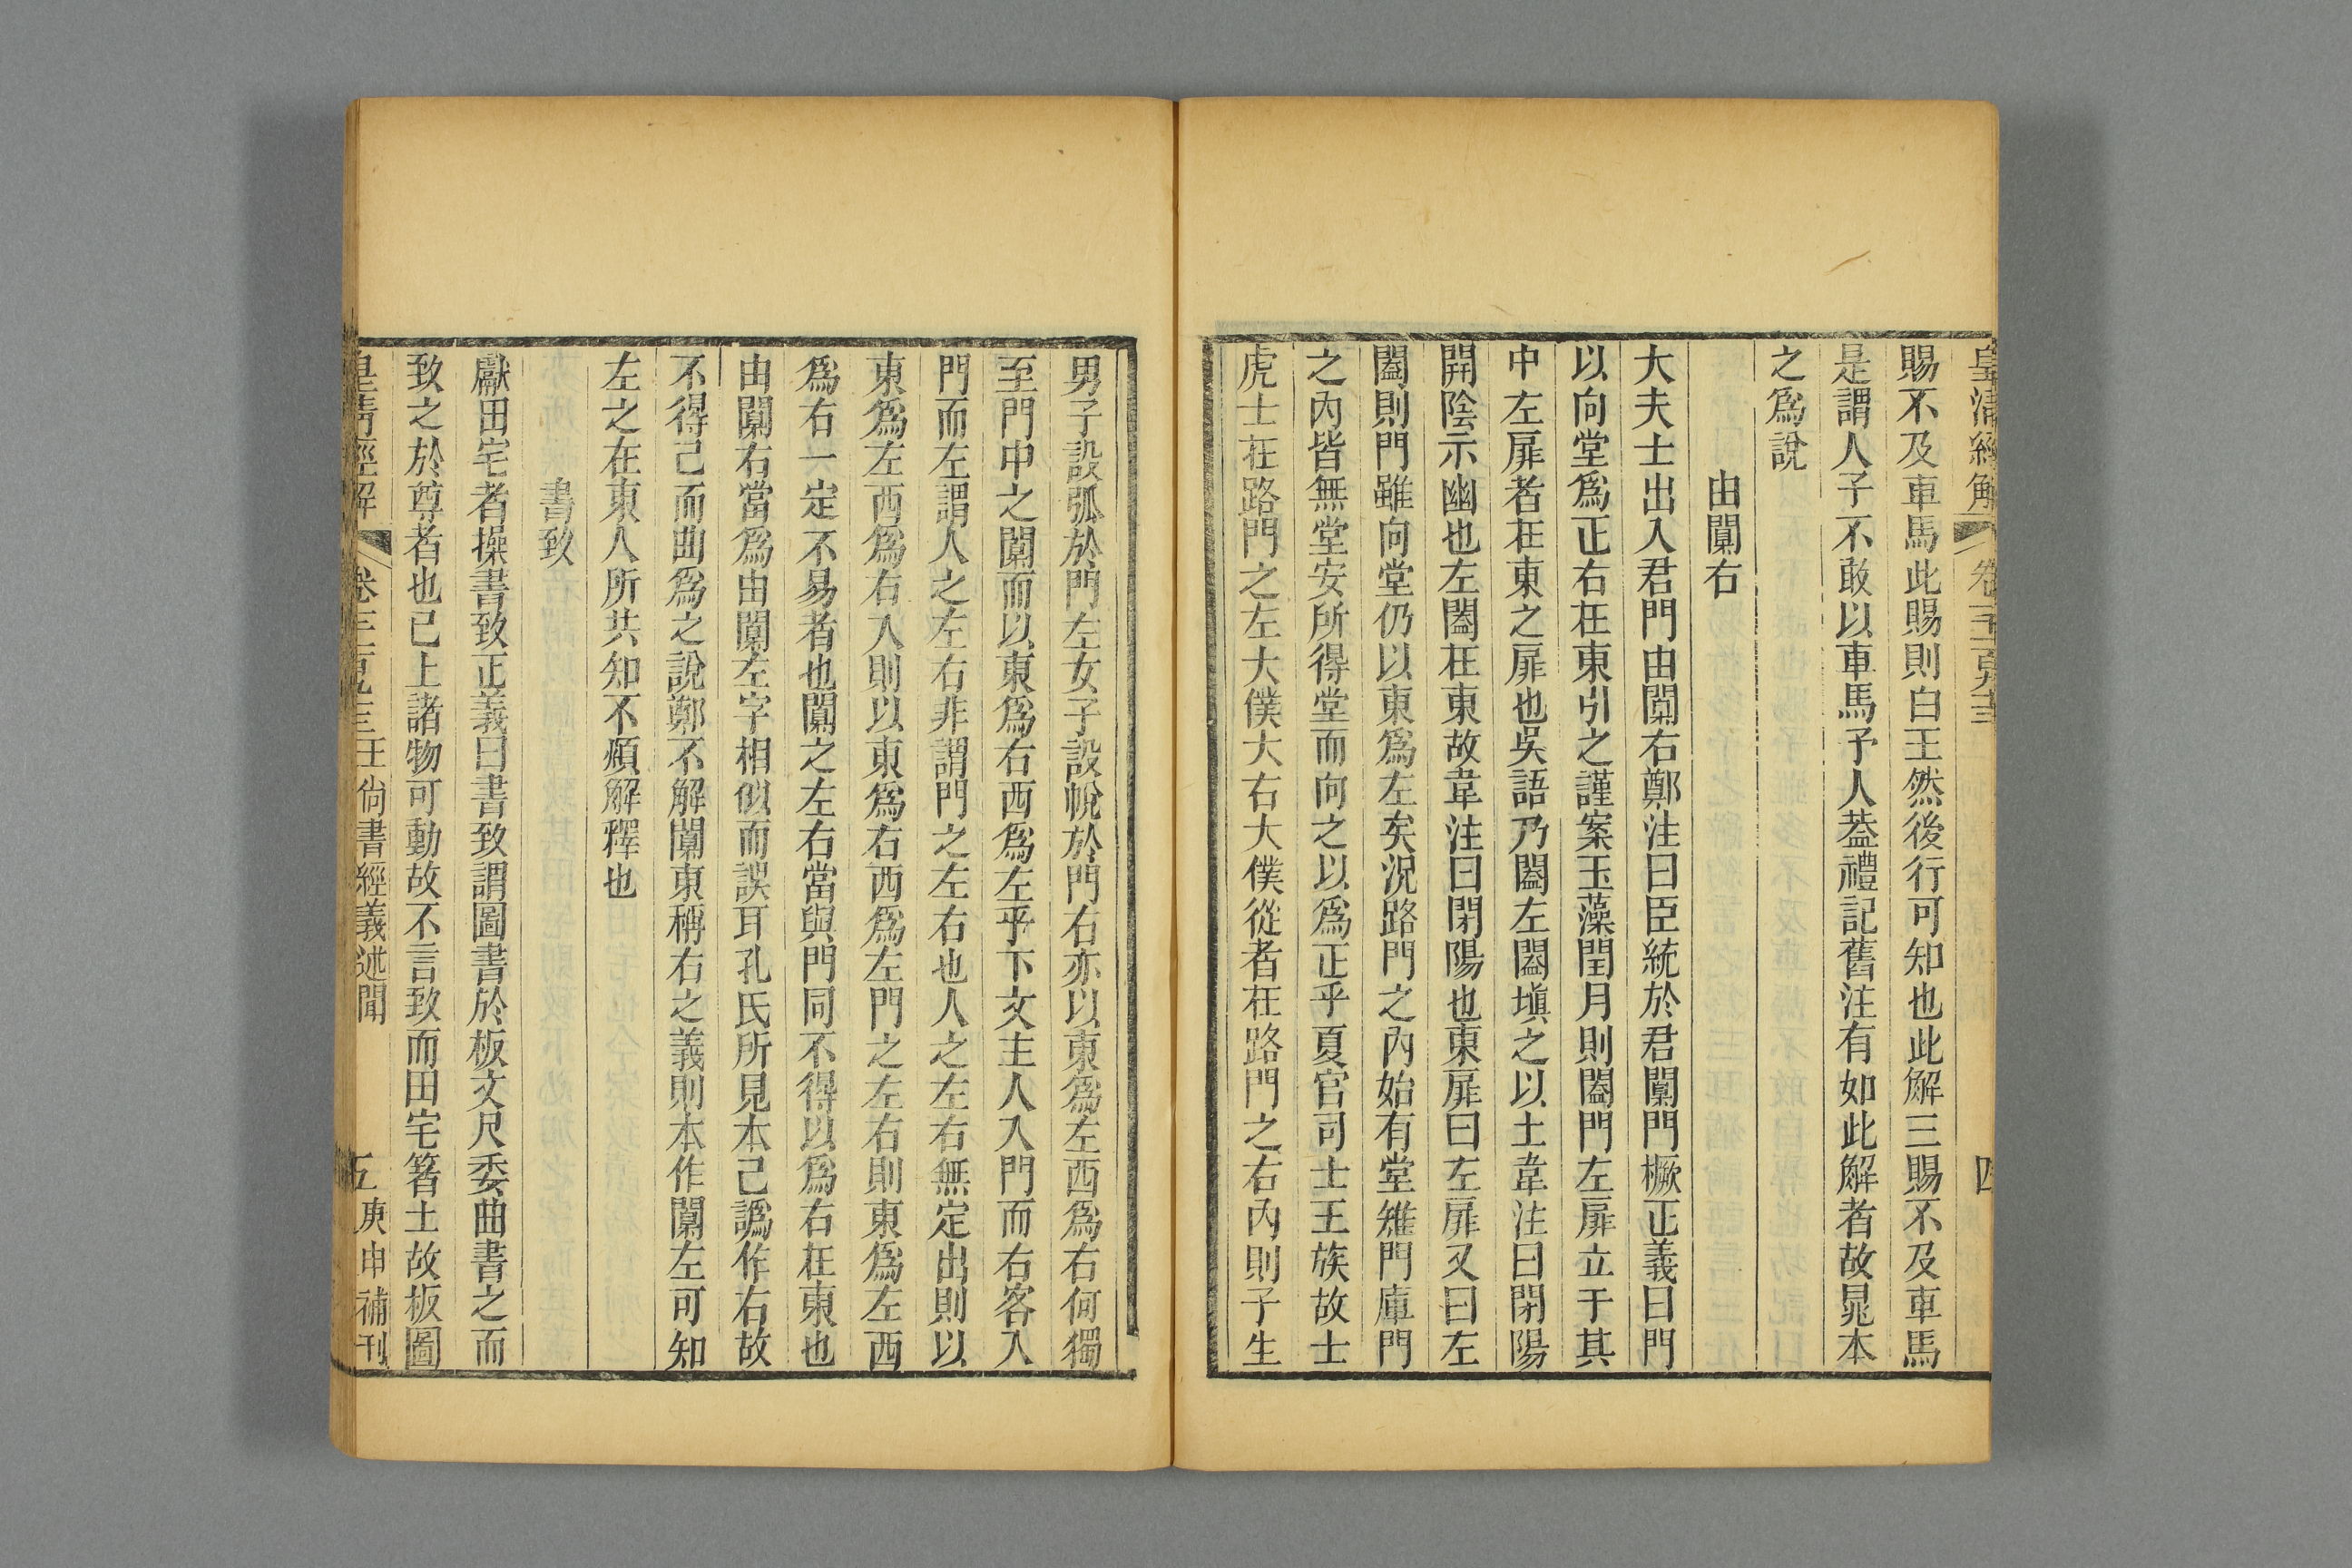 皇清經解 卷 四
賜不及車馬此賜則白王然後行可知也此解三賜不及車馬
是謂人子不敢以車馬予人葢禮記舊注有如此解者故晁本
之爲說
由闑右
大夫士出入君門由闑右鄭注曰臣統於君闑門橛正義曰門
以向堂爲正右在東引之謹案玉藻閏月則闔門左扉立于其
中左扉者在東之扉也吳語乃闔左闔塡之以土韋注曰閉陽
開陰示幽也左闔在東故韋注曰閉陽也東扉曰左扉又曰左
闔則門雖向堂仍以東爲左矣況路門之內始有堂雉門庫門
之內皆無堂安所得堂而向之以爲正乎夏官司士王族故士
虎士在路門之左大僕大右大僕從者在路門之右內則子生
男子設弧於門左女子設帨於門右亦以東爲左西爲右何獨
至門中之闑而以東爲右西爲左乎下文主人入門而右客入
門而左謂人之左右非謂門之左右也人之左右無定出則以
東爲左西爲右入則以東爲右西爲左門之左右則東爲左西
爲右一定不易者也闑之左右當與門同不得以爲右在東也
由闑右當爲由闑左字相似而誤耳孔氏所見本已譌作右故
不得已而曲爲之說鄭不解闑東稱右之義則本作闑左可知
左之在東人所共知不煩解釋也
書致
獻田宅者操書致正義曰書致謂圖書於板丈尺委曲書之而
致之於尊者也已上諸物可動故不言致而田宅着土故板圖
皇清經解 卷 王尙書經義述聞 五 庚申補刊